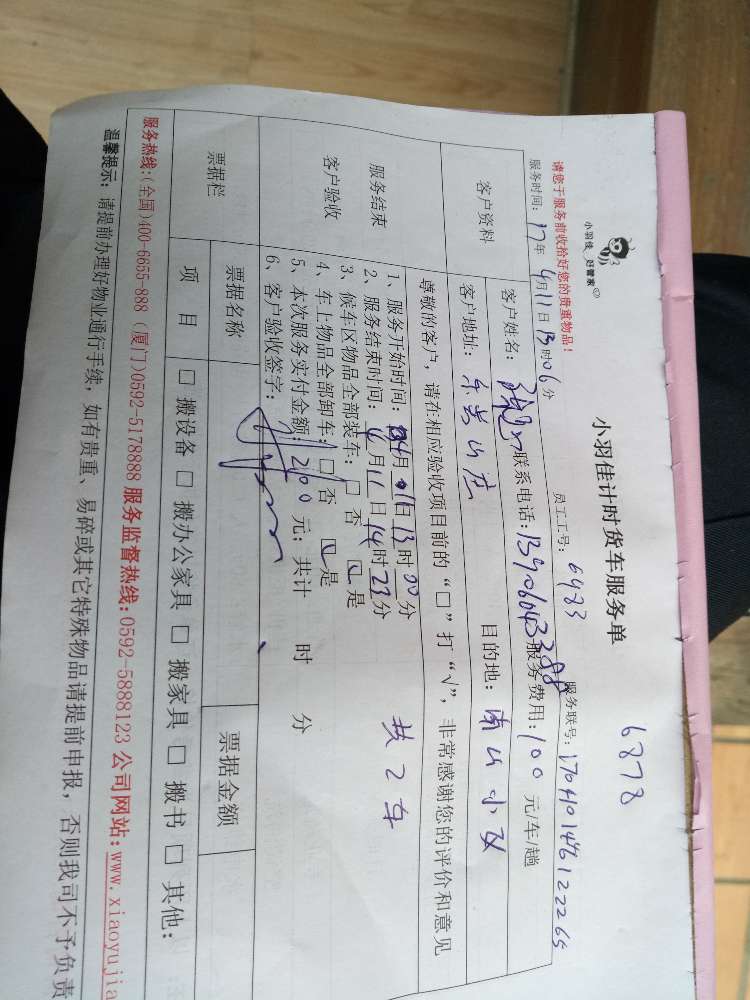 6878
小羽佳 好管家
小羽佳计时货车服务单
请您于服务前收拾好您的贵重物品!
员工工号: 6983 服务联号:
服务时间: 17年 4月11日13时06分
客户资料
客户姓名: 联系电话: 服务费用: 100 元/车/趟
客户地址: 目的地: 南山小区
尊敬的客户, 请在相应验收项目前的“□”打“√”, 非常感谢您的评价和意见
服务结束
客户验收
1、服务开始时间: 月 日13时00分
2、服务结束时间: 4月11日14时23分 共2车
3、候车区物品全部装车: □ 否 □ 是
4、车上物品全部卸车: □ 否 □ 是
5、本次服务实付金额: 200 元; 共计 时 分
6、客户验收签字:
票据栏
票据名称 票据金额
项 目 □ 搬设备 □ 搬办公家具 □ 搬家具 □ 搬书 □ 其他:
服务热线:(全国)400-6655-888 (厦门)0592-5178888 服务监督热线:0592-5888123 公司网站:www.xiaoyujia
温馨提示: 请提前办理好物业通行手续, 如有贵重、易碎或其它特殊物品请提前申报, 否则我司不予负责